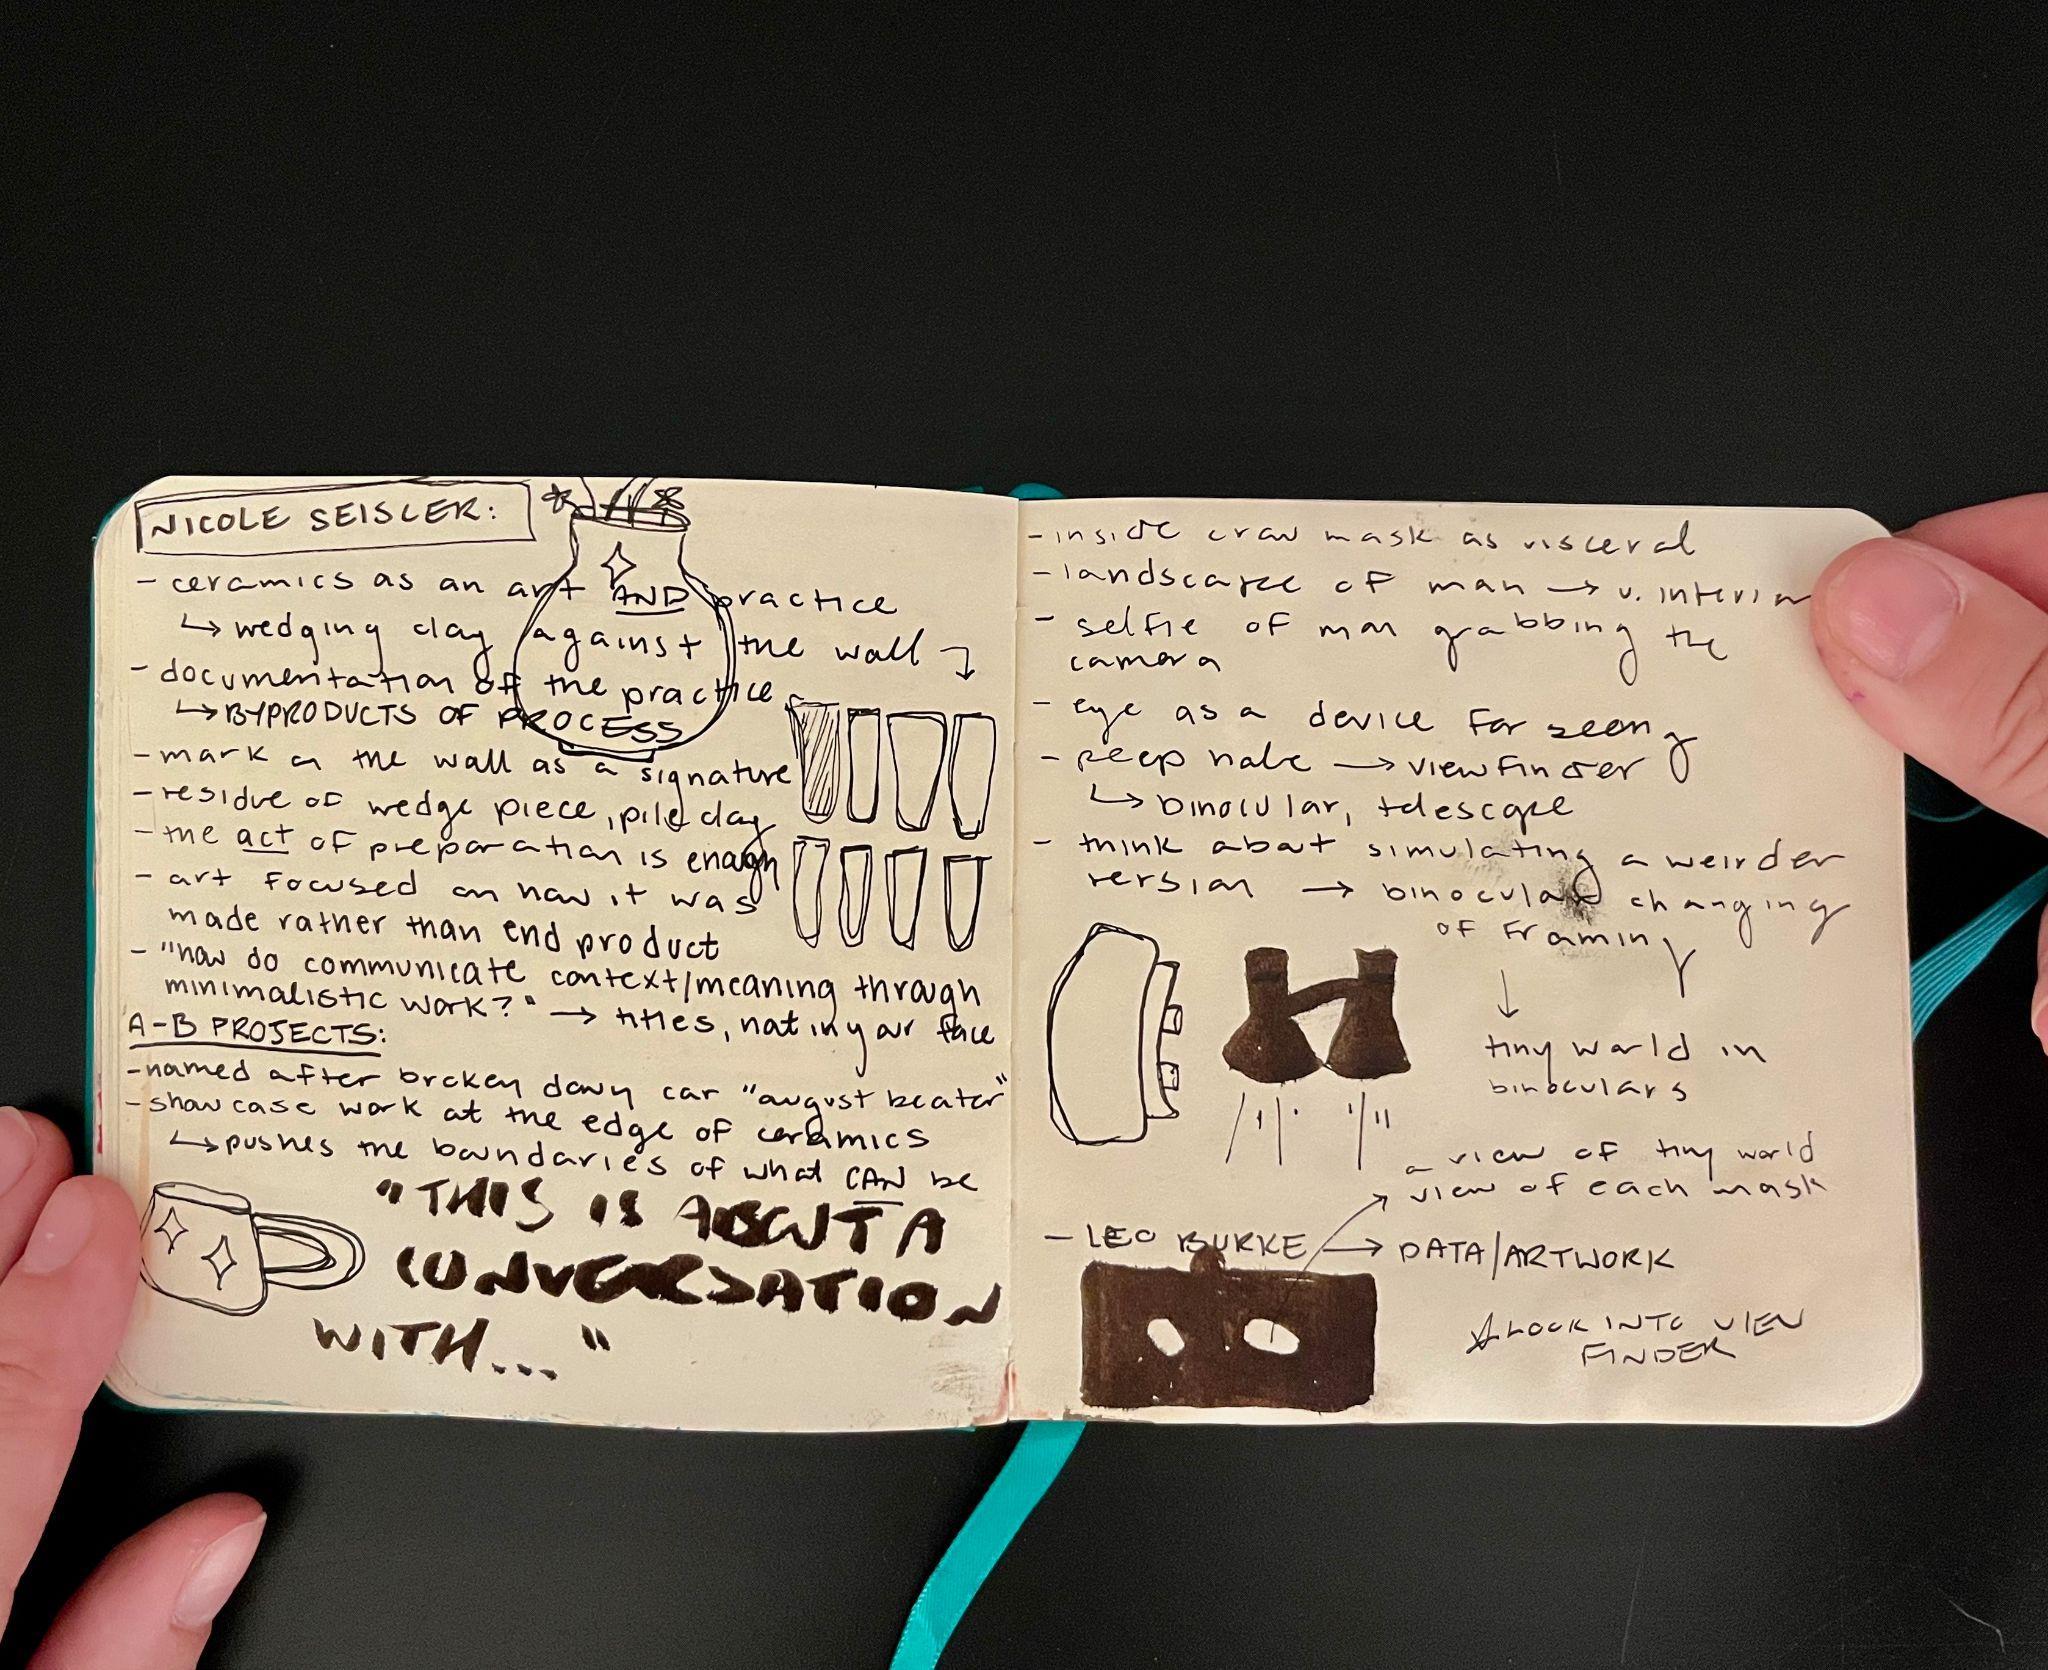 NICOLE SEISLER:
- ceramics as an art AND practice
↳ wedging clay against the wall ↴
- documentation of the practice
↳ BYPRODUCTS OF PROCESS
- mark on the wall as a signature
- residue of wedge piece, pile clay
- the act of preparation is enough
- art focused on how it was
made rather than end product
- "how do communicate context/meaning through
minimalistic work?" → titles, not in your face
A-B PROJECTS:
- named after broken down car "august beater"
- showcase work at the edge of ceramics
↳ pushes the boundaries of what CAN be
"THIS IS ABOUT A
CONVERSATION
WITH..."
- inside craw mask as visceral
- landscape of man → v. interior
- selfie of man grabbing the
camera
- eye as a device for seeing
- peep hole → viewfinder
↳ binocular, telescope
- think about simulating a weirder
version → binocular changing
of framing
↓
tiny world in
binoculars
a view of tiny world
view of each mask
- LEO BURKE → DATA/ARTWORK
☆ LOOK INTO VIEW
FINDER